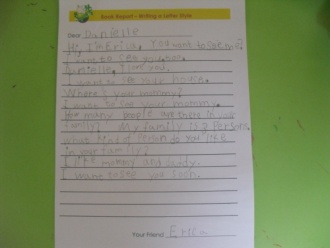 Book Report - Writing a Letter Style
Dear Danielle
Hi, I'm Erica. You want to see me?
I want to see you too.
Danielle, I love you.
I want to see your house.
Where's your mommy?
I want to see your mommy.
How many people are there in your
family? My family is 8 Persons.
what kind person do you like
in your family?
I like mommy and dady.
I want to see you soon.
Your Friend, Erica